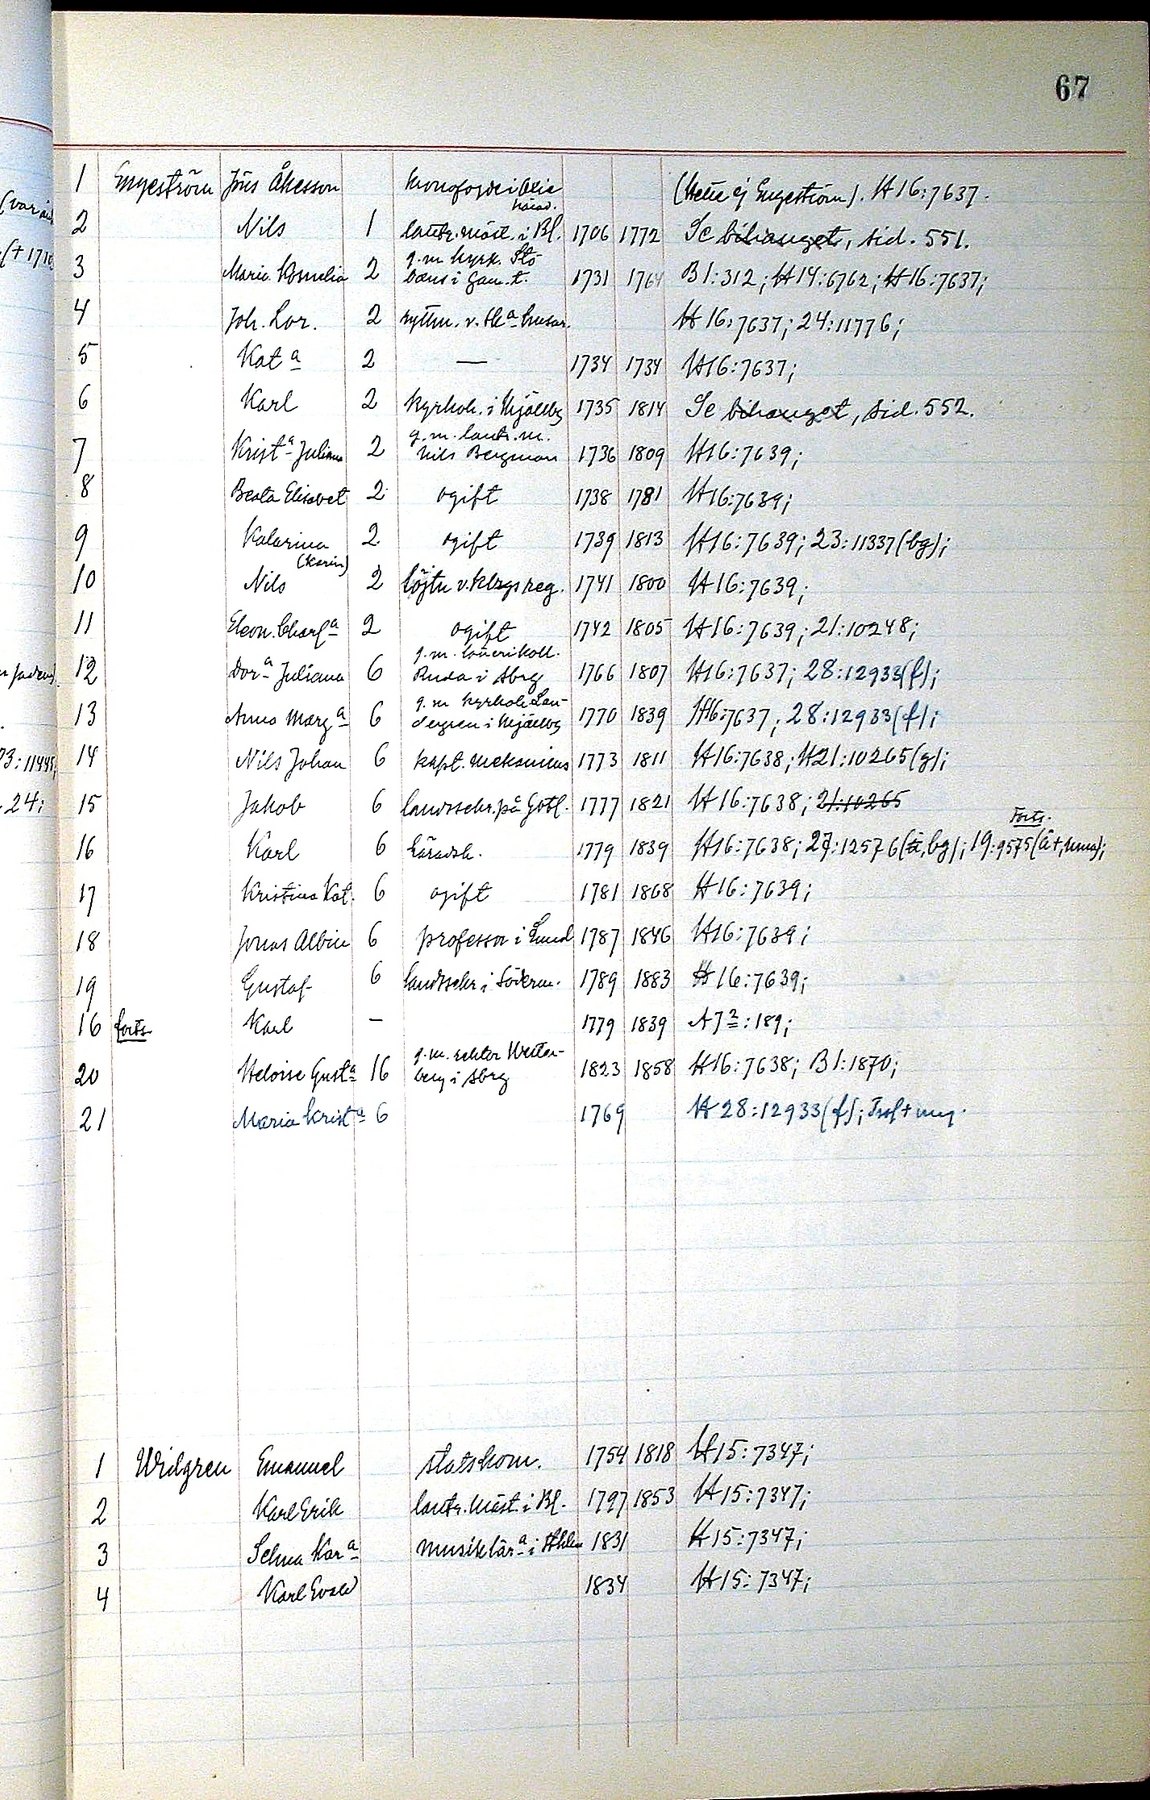 67
1 Engeström Jöns Åkesson kronofogde i Oxie härad. (Hette ej Engeström). H16:7637.
2 Nils 1 lantr.mäst. i Bl. 1706 1772 Se bihanget, sid. 551.
3 Maria Kornelia 2 g.m. kyrk. Sto- i Gam.t. 1731 1764 B1:312; H14:6762; H16:7637;
4 Joh. Lor. 2 ryttm. v. Sk:a husar. H16:7637; 24:11776;
5 Kat:a 2 — 1734 1734 H16:7637;
6 Karl 2 kyrkoh. i Mjällby 1735 1814 Se bihanget, sid. 552.
7 Krist:a Juliana 2 g.m. lantr.m. Nils Bergman 1736 1809 H16:7639;
8 Beata Elisabet 2 ogift 1738 1781 H16:7639;
9 Katarina (Karin) 2 ogift 1739 1813 H16:7639; 23:11337(bg);
10 Nils 2 löjtn v. reg. 1741 1800 H16:7639;
11 Eleon. Charl:a 2 ogift 1742 1805 H16:7639; 21:10248;
12 Dor:a Juliana 6 g.m. i Sbrg 1766 1807 H16:7637; 28:12933(f);
13 Anna Marg:a 6 g.m kyrkoh Lan- i Mjällby 1770 1839 H16:7637; 28:12933(f);
14 Nils Johan 6 kapt. mekanicus 1773 1811 H16:7638; H21:10265(g);
15 Jakob 6 landssekr. på Gotl. 1777 1821 H16:7638; 21:10265
16 Karl 6 häradsh. 1779 1839 H16:7638; 27:12576(å, bg); 19:9575(å+, ); Forts.
17 Kristina Kat. 6 ogift 1781 1868 H16:7639;
18 Jonas Albin 6 professor i Lund 1787 1846 H16:7639;
19 Gustaf 6 landssekr i Söderm. 1789 1883 H16:7639;
16 forts. Karl — 1779 1839 A7²:189;
20 Heloise Gust:a 16 g.m. rektor Wester- berg i Sbrg 1823 1858 H16:7638; B1:1870;
21 Maria Krist:a 6 1769 H28:12933(f);
1 Widgren Emanuel statskom. 1754 1818 H15:7347;
2 Karl Erik lantr.mäst. i Bl. 1797 1853 H15:7347;
3 Selma Kar:a musiklär:a i Sthlm 1831 H15:7347;
4 Karl Evald 1834 H15:7347;